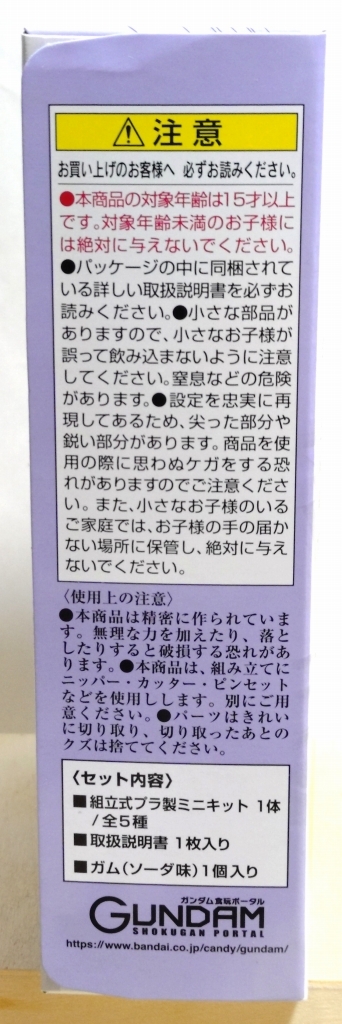 ⚠注意
お買い上げのお客様へ 必ずお読みください。
●本商品の対象年齢は15才以上
です。対象年齢未満のお子様に
は絶対に与えないでください。
●パッケージの中に同梱されて
いる詳しい取扱説明書を必ずお
読みください。●小さな部品が
ありますので、小さなお子様が
誤って飲み込まないように注意
してください。窒息などの危険
があります。●設定を忠実に再
現してあるため、尖った部分や
鋭い部分があります。商品を使
用の際に思わぬケガをする恐
れがありますのでご注意くださ
い。また、小さなお子様のいる
ご家庭では、お子様の手の届か
ない場所に保管し、絶対に与え
ないでください。
〈使用上の注意〉
●本商品は精密に作られていま
す。無理な力を加えたり、落と
したりすると破損する恐れがあ
ります。●本商品は、組み立てに
ニッパー・カッター・ピンセット
などを使用しします。別にご用
意ください。●パーツはきれい
に切り取り、切り取ったあとの
クズは捨ててください。
〈セット内容〉
■組立式プラ製ミニキット 1体
/全5種
■取扱説明書 1枚入り
■ガム(ソーダ味)1個入り
ガンダム食玩ポータル
GUNDAM
SHOKUGAN PORTAL
https://www.bandai.co.jp/candy/gundam/